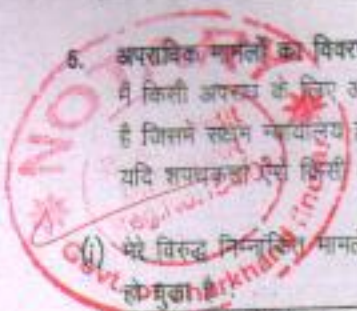 5. अपराधिक मामलों का विवर
मैं किसी अपराध के लिए अ
है जिसमें सक्षम न्यायालय
यदि शपथकर्ता ऐसे किसी
(i) मेरे विरुद्ध निम्नांकित मामल
हो चुका है
NO
Govt. of Jharkhand (India)